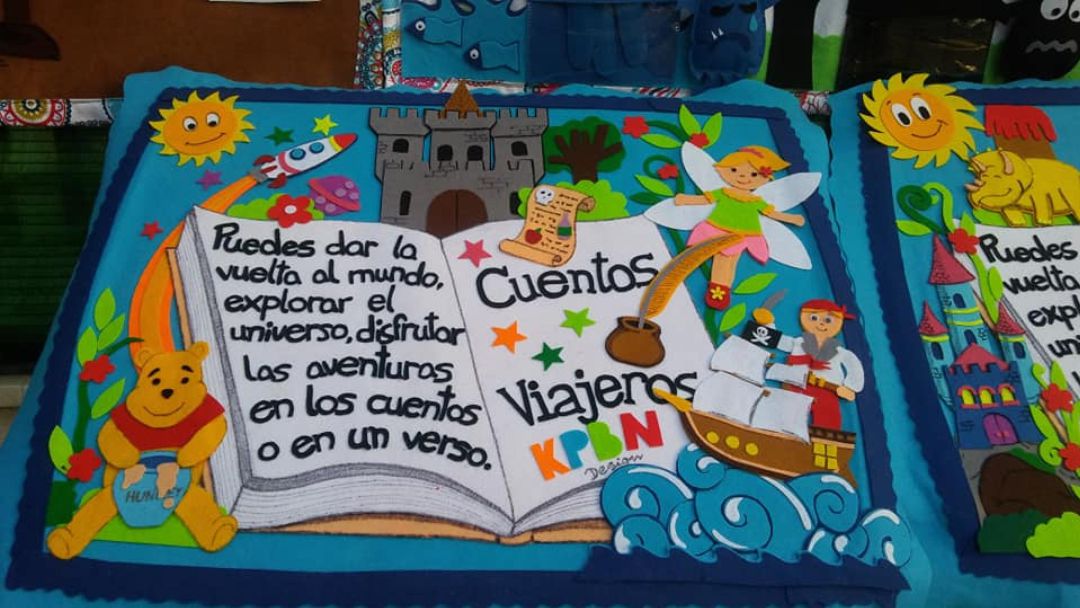 Puedes dar la
vuelta al mundo,
explorar el
universo, disfrutar
las aventuras
en los cuentos
o en un verso.
Cuentos
Viajeros
KPBN
Design
HUN
Puedes
vuelta
expl
un